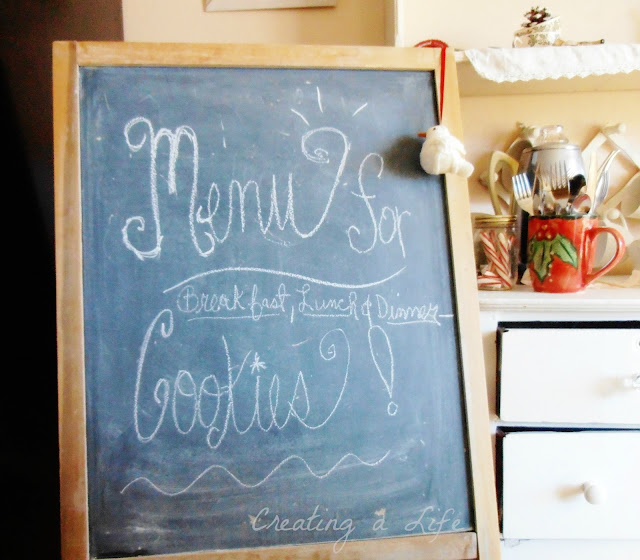 Menu for
Breakfast, Lunch & Dinner
Cookies!
Creating a Life